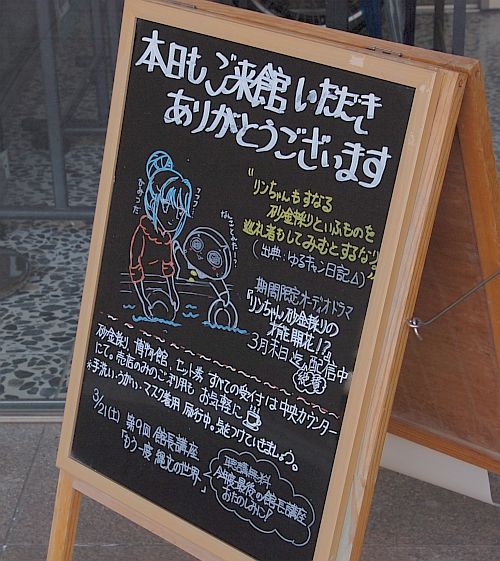 本日も ご来館 いただき
ありがとうございます
"リンちゃんもすなる
砂金採りといふものを
巡礼者もしてみむとするなり
(出典:ゆるキャン日記△)
期間限定オーディオドラマ
『リンちゃん砂金採りの
才能開花!?』
3月末迄配信中
砂金採り 博物館、セット券 すべての受付は中央カウンター
にて。売店のみのご利用も お気軽に
*手洗い・うがい・マスク着用 励行中。気をつけていきましょう。
3/21(土) 第9回 館長講座
「もう一度 縄文の世界」
聴講無料
今年度最後の館長講座
おたのしみに!